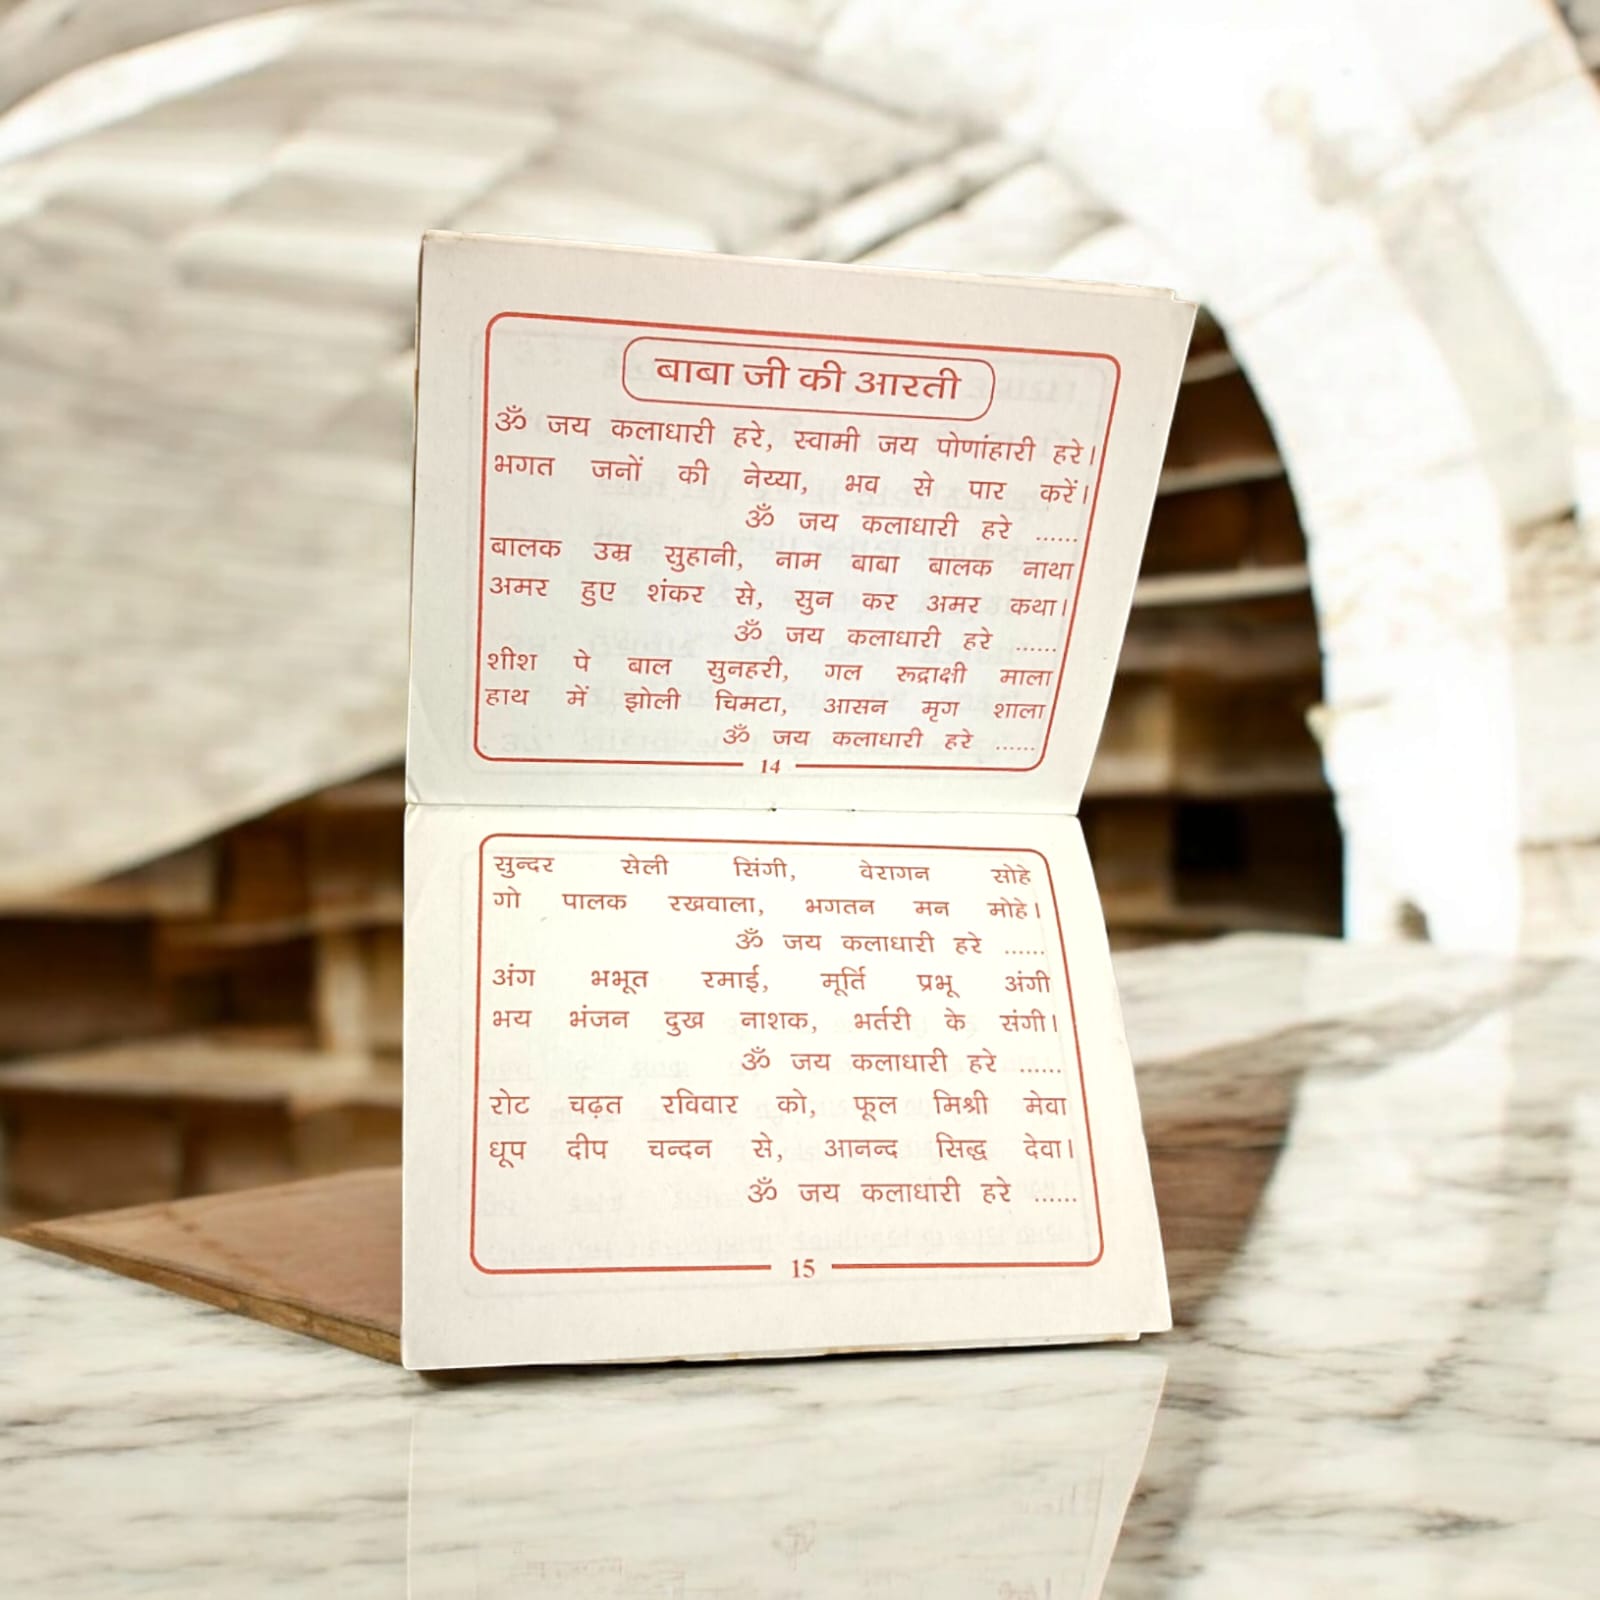 बाबा जी की आरती
ॐ जय कलाधारी हरे, स्वामी जय पोणांहारी हरे।
भगत जनों की नेय्या, भव से पार करें।
ॐ जय कलाधारी हरे ......
बालक उम्र सुहानी, नाम बाबा बालक नाथा
अमर हुए शंकर से, सुन कर अमर कथा।
ॐ जय कलाधारी हरे ......
शीश पे बाल सुनहरी, गल रूद्राक्षी माला
हाथ में झोली चिमटा, आसन मृग शाला
ॐ जय कलाधारी हरे ......
14
सुन्दर सेली सिंगी, वेरागन सोहे
गो पालक रखवाला, भगतन मन मोहे।
ॐ जय कलाधारी हरे ......
अंग भभूत रमाई, मूर्ति प्रभू अंगी
भय भंजन दुख नाशक, भर्तरी के संगी।
ॐ जय कलाधारी हरे ......
रोट चढ़त रविवार को, फूल मिश्री मेवा
धूप दीप चन्दन से, आनन्द सिद्ध देवा।
ॐ जय कलाधारी हरे ......
15